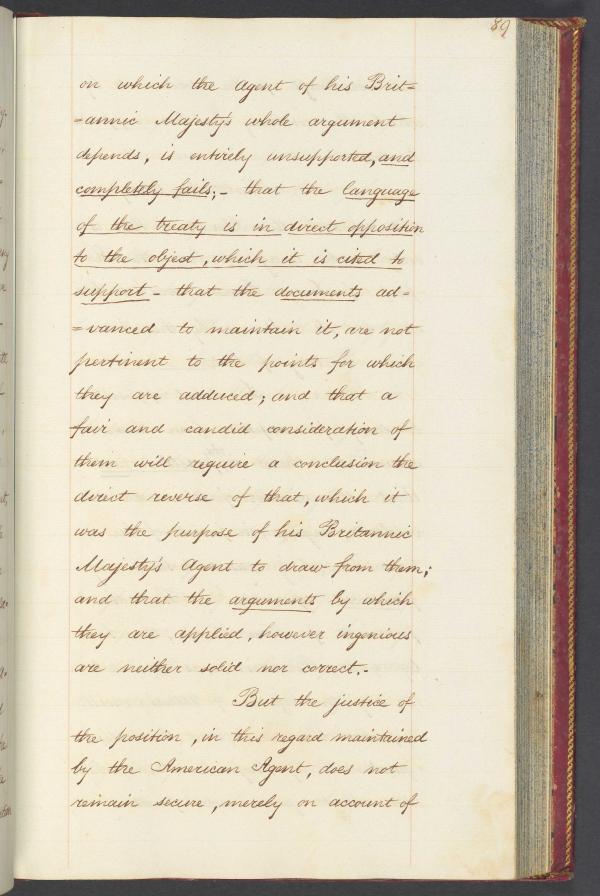 89
on which the Agent of his Brit=
=annic Majesty's whole argument
depends, is entirely unsupported, and
completely fails;- that the language
of the treaty is in direct opposition
to the object, which it is cited to
support - that the documents ad=
=vanced to maintain it, are not
pertinent to the points for which
they are adduced; and that a
fair and candid consideration of
them will require a conclusion the
direct reverse of that, which it
was the purpose of his Britannic
Majesty's Agent to draw from them;
and that the arguments by which
they are applied, however ingenious
are neither solid nor correct.-
But the justice of
the position, in this regard maintained
by the American Agent, does not
remain secure, merely on account of